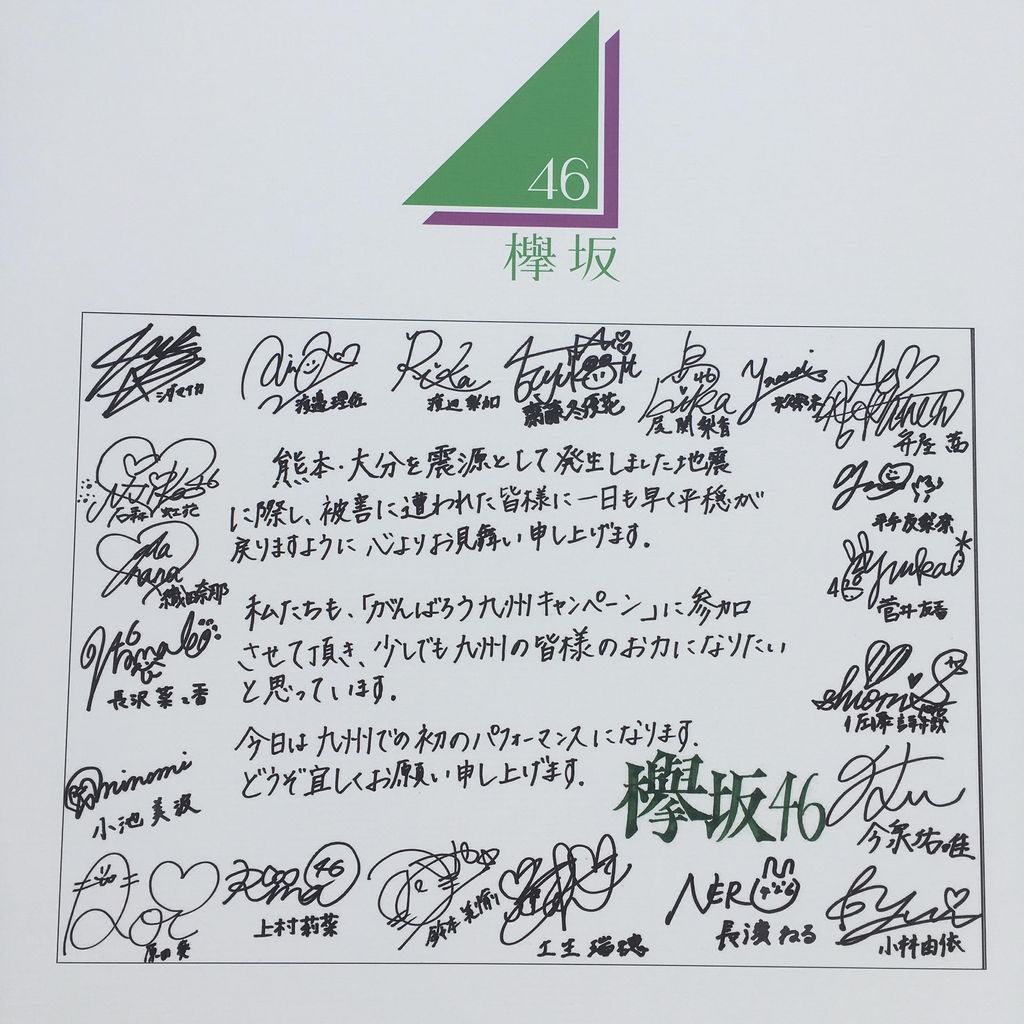 46
欅坂
シダマイカ
渡邉理佐
Rika
渡辺梨加
齋藤冬優花
尾関梨香
米谷奈々未
守屋茜
熊本・大分を震源として発生しました地震
に際し、被害に遭われた皆様に一日も早く平穏が
戻りますように心よりお見舞い申し上げます。
石森虹花
平手友梨奈
織田奈那
yuuka
菅井友香
私たちも、「がんばろう九州キャンペーン」に参加
させて頂き、少しでも九州の皆様のお力になりたい
と思っています。
長沢菜々香
shiomi
佐藤詩織
今日は九州での初のパフォーマンスになります。
どうぞ宜しくお願い申し上げます。
欅坂46
minami
小池美波
今泉佑唯
原田葵
上村莉菜
鈴本美愉
土生瑞穂
NERU
長濱ねる
小林由依